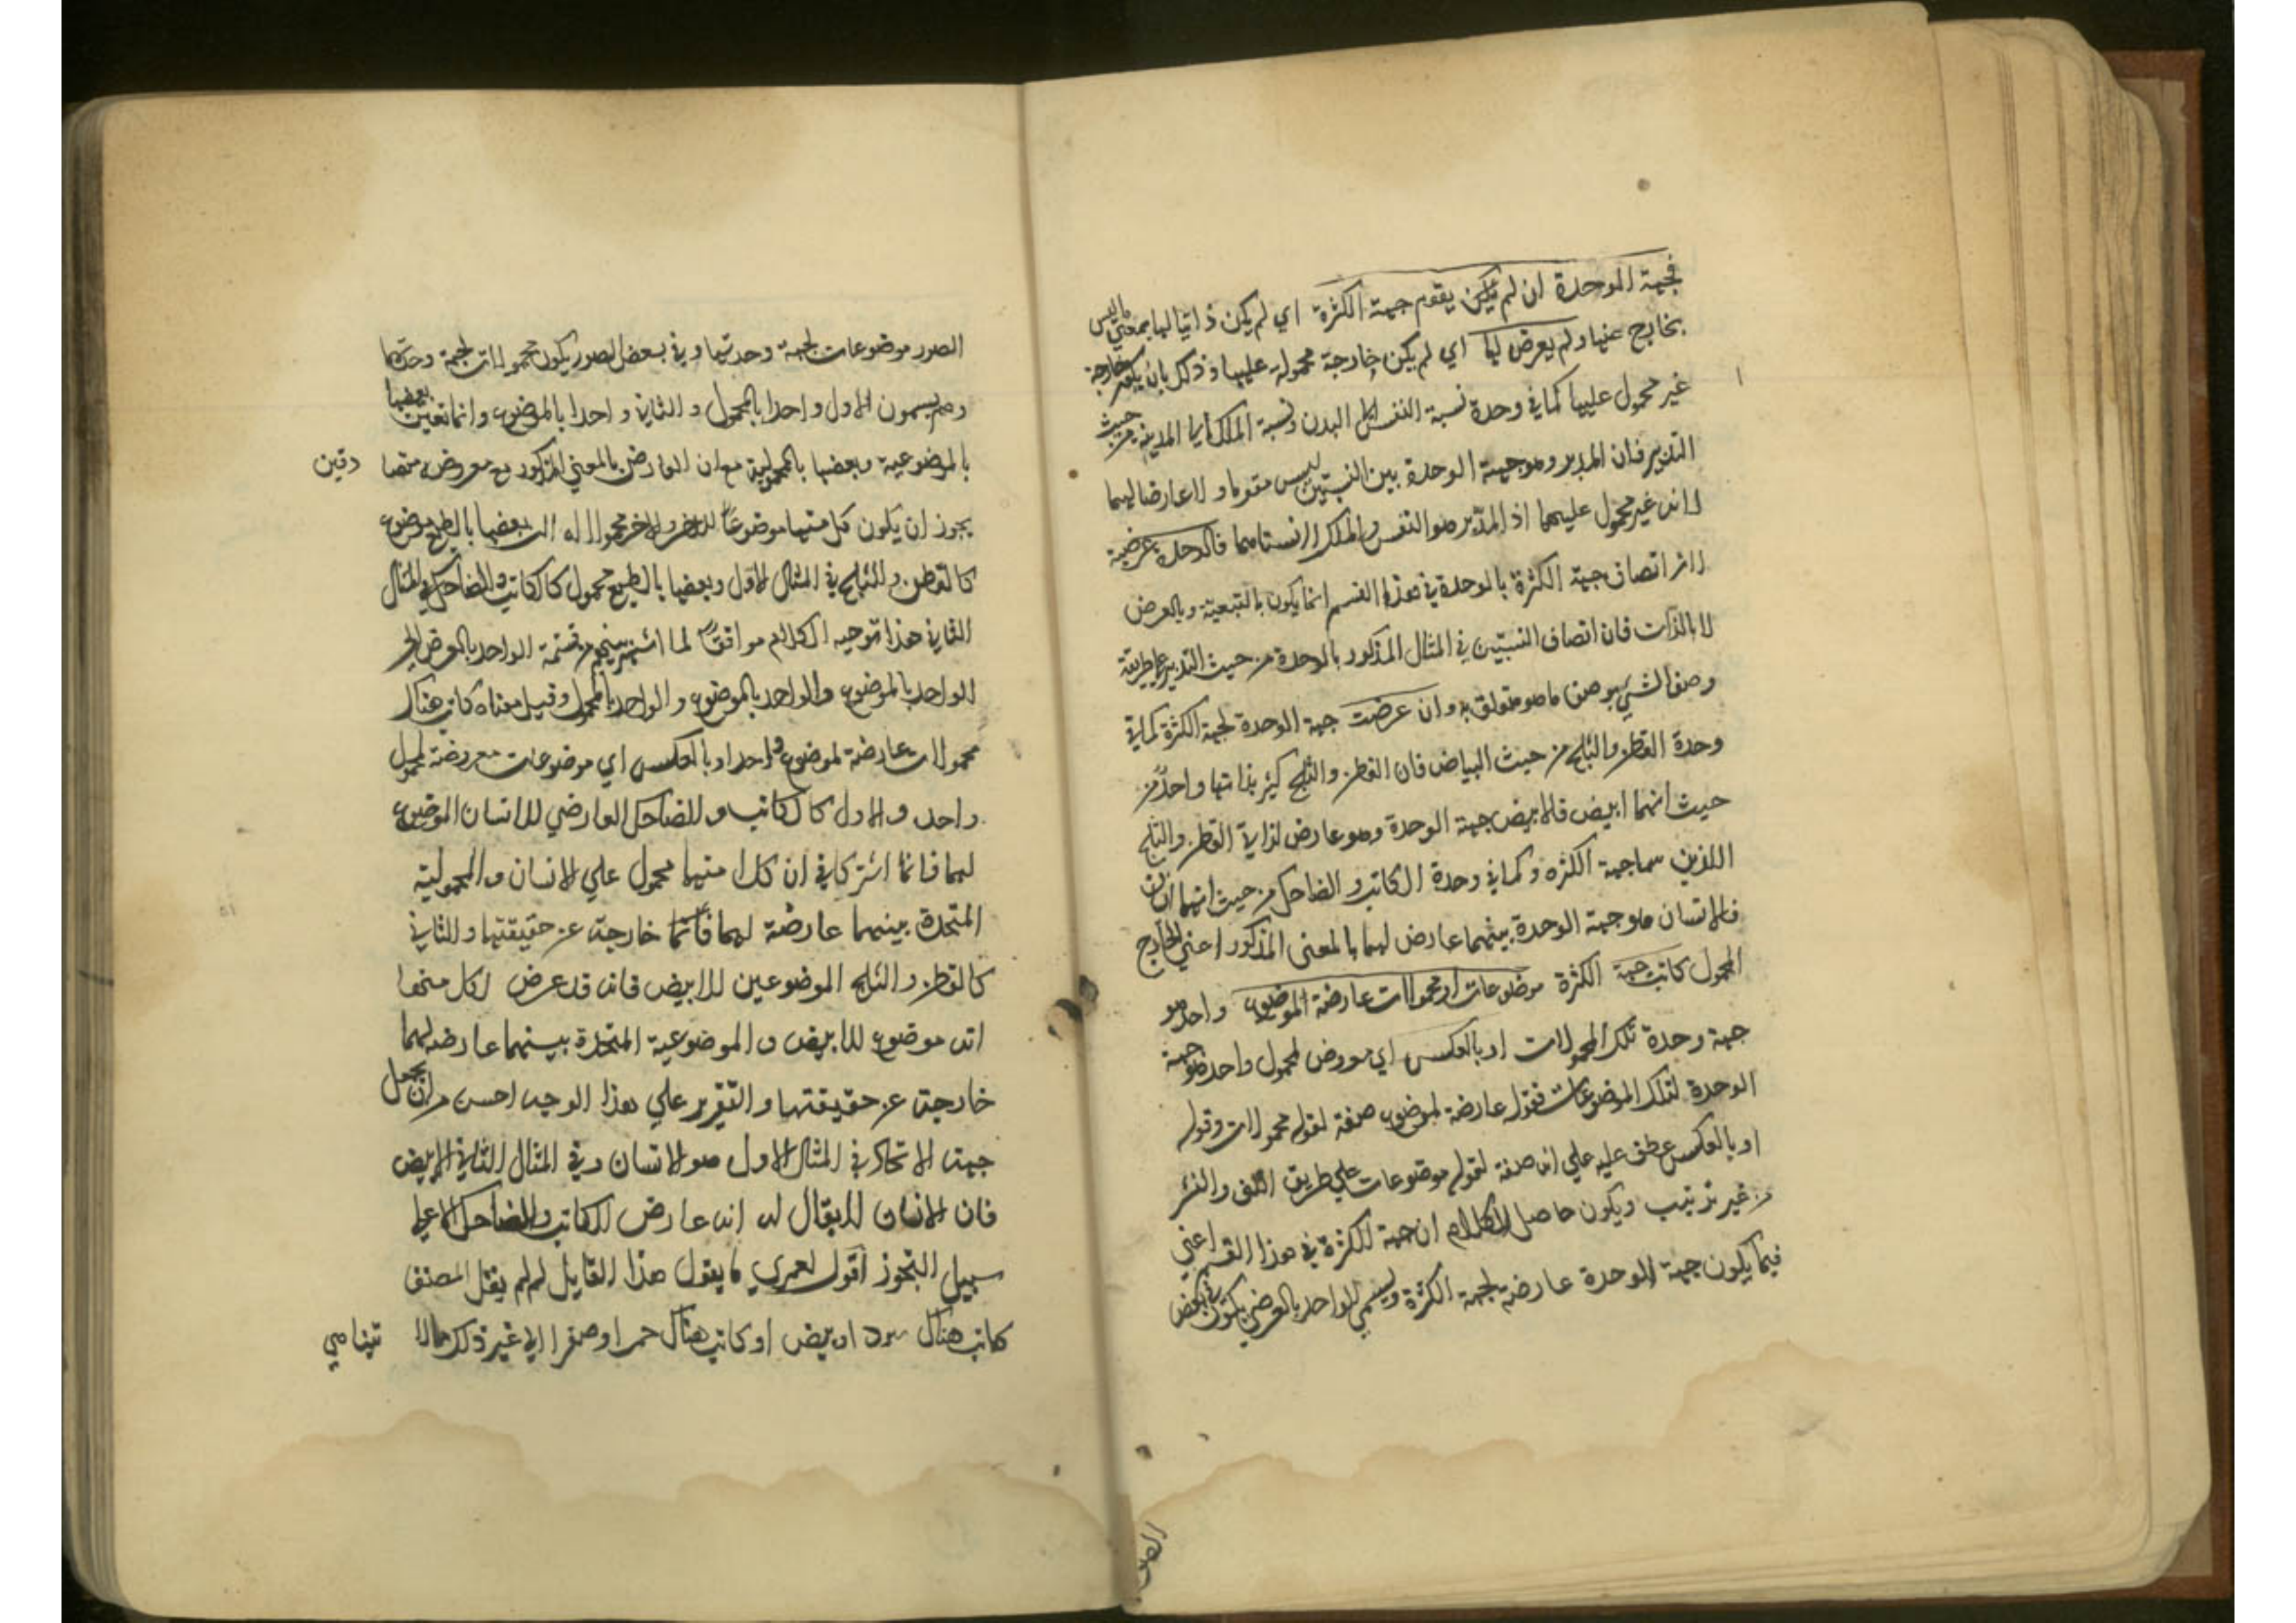 فجهة الوحدة ان لم يكن يقوم جهة الكثرة اي لم يكن ذاتيا لها بمعني ما ليس
بخارج عنها ولم يعرض لها اي لم يكن خارجة محمولة عليها وذلك بان يكون خارجة
غير محمول عليها كما في وحدة نسبة النفس الي البدن ونسبة الملك الي المدينة من حيث
التدبير فان المدبر وهو جهة الوحدة بين النسبتين ليس مقوما ولا عارضا لهما
لانه غير محمول عليهما اذ المدبر هو النفس والملك لا نسبتاهما فالوحدة عرضية
لان اتصاف جهة الكثرة بالوحدة في هذا القسم انما يكون بالتبعية وبالعرض
لا بالذات فان اتصاف النسبتين في المثال المذكور بالوحدة من حيث التدبير علي طريقة
وصف الشي بوصف ما هو متعلق به وان عرضت جهة الوحدة لجهة الكثرة كما في
وحدة القطن والثلج من حيث البياض فان القطن والثلج كثير بذاتها واحد من
حيث انهما ابيض فالابيض جهة الوحدة وهو عارض لذاتي القطن والثلج
اللذين هما جهة الكثره وكما في وحدة الكاتب والضاحك من حيث انهما انسان
فالانسان هو جهة الوحدة بينهما عارض لهما بالمعني المذكور اعني الخارج
المحمول كانت جهة الكثرة موضوعات او محمولات عارضة لموضوع واحد هو
جهة وحدة تلك المحمولات او بالعكس اي معروض لمحمول واحد هو جهة
الوحدة لتلك الموضوعات فقوله عارضة لموضوع صفة لقوله محمولات وقوله
او بالعكس عطف عليه علي انه صفة لقوله موضوعات علي طريق اللف والنشر
من غير ترتيب ويكون حاصل الكلام ان جهة الكثرة في هذا القسم اعني
فيما يكون جهة الوحدة عارضة لجهة الكثرة ويسمي الواحد بالعرض يكون في بعض
الصور
الصور موضوعات لجهة وحدتها وفي بعض الصور يكون محمولات لجهة وحدتها
وهم يسمون الاول واحدا بالمحمول والثاني واحدا بالموضوع وانما تعين بعضها
بالموضوعية وبعضها بالمحمولية مع ان العارض بالمعني المذكور مع معروضه متصا دقين
يجوز ان يكون كل منهما موضوعا للاخر والاخر محمولا له لان بعضها بالطبع موضوع
كالقطن والثلج في المثال الاول وبعضها بالطبع محمول كالكاتب والضاحك في المثال
الثاني هذا توجيه الكلام موافقا لما اشتهر بينهم من قسمة الواحد بالعرض الي
الواحد بالموضوع والواحد بالموضوع والواحد بالمحمول وقيل معناه كانت هناك
محمولات عارضة لموضوع واحد او بالعكس اي موضوعات معروضة لمحمول
واحد والاول كالكاتب والضاحك العارضي للانسان الموضوع
لهما فانما اشتركا في ان كلا منهما محمول علي الانسان والمحمولية
المتحدة بينهما عارضة لهما فانها خارجة عن حقيقتها والثاني
كالقطن والثلج الموضوعين للابيض فانه قد عرض لكل منهما
انه موضوع للابيض والموضوعية المتحدة بينهما عارضة لهما
خارجة عن حقيقتها والتقرير علي هذا الوجه احسن من ان يجعل
جهة الاتحاد في المثال الاول هو الانسان وفي المثال الثاني الابيض
فان الانسان لا يقال له انه عارض للكاتب والضاحك الا علي
سبيل التجوز اقول لعمري ما يقول هذا القايل لو لم يقل المصنف
كانت هناك سود او بيض او كانت هناك حمر او صفر الي غير ذلك مما لا تيناهي